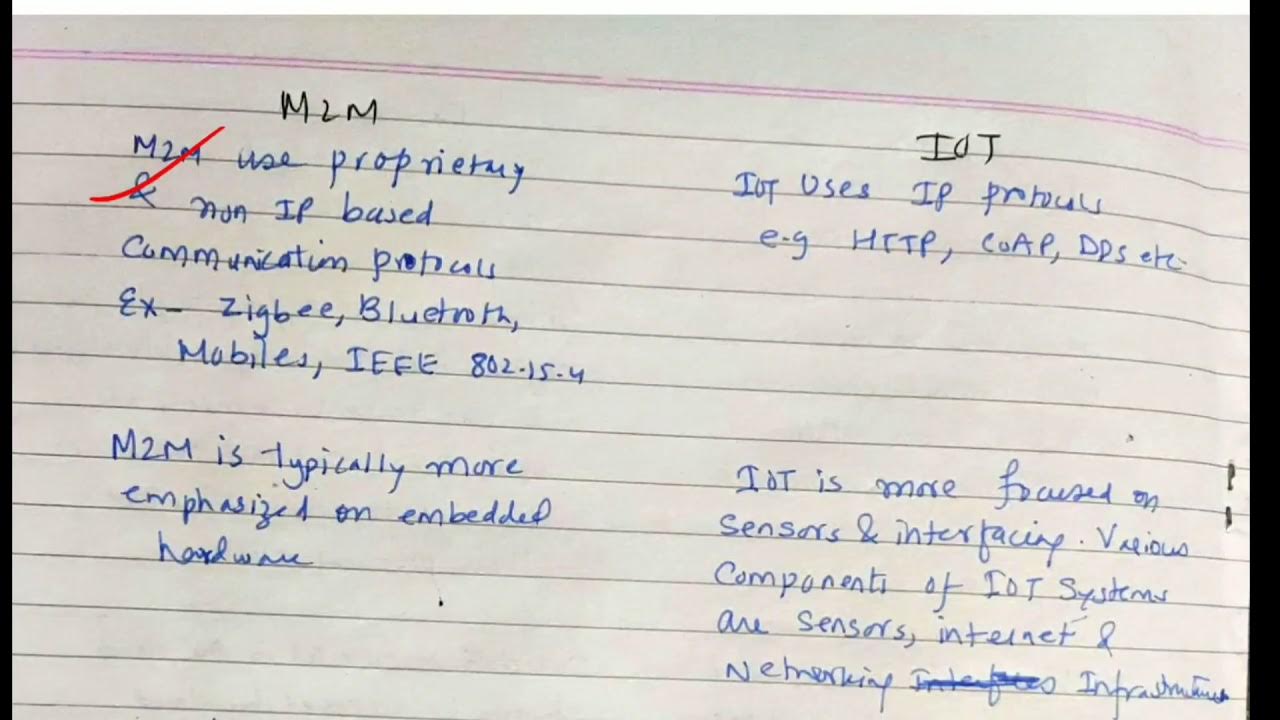 M2M
M2M use proprietary
& non IP based
Communication protocols
Ex- Zigbee, Bluetooth,
Mobiles, IEEE 802.15.4
M2M is typically more
emphasized on embedded
hardware
IOT
IOT Uses IP protocols
e.g HTTP, COAP, DDS etc.
IOT is more focused on
sensors & interfacing. Various
Components of IOT Systems
are sensors, internet &
Networking Infrastructure